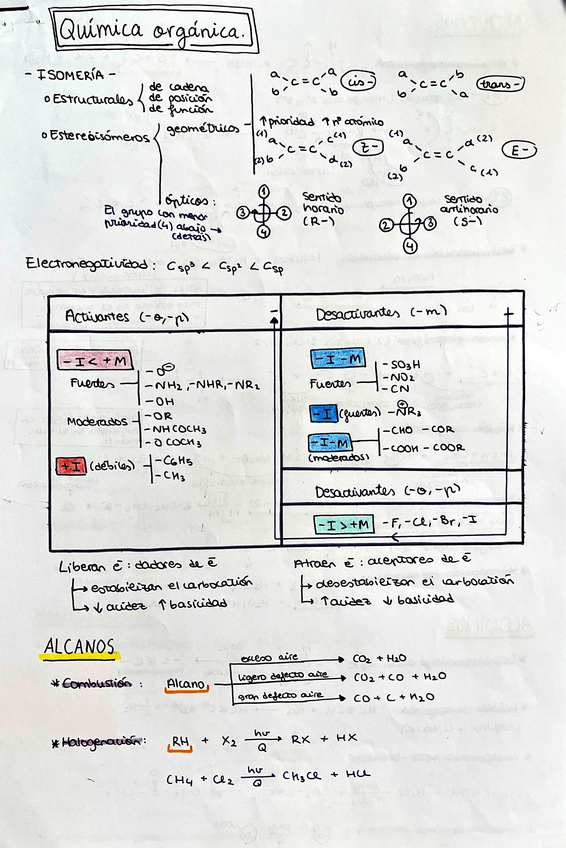 Química orgánica.
- ISOMERÍA -
o Estructurales
de cadena
de posición
de función
o Estereoisómeros
geométricos
a b C = C a b cis-
a b C = C b a trans-
↑ prioridad ↑ nº atómico
(1) a (2) b C = C c (1) d (2) Z-
(1) a b (2) C = C d (2) c (1) E-
ópticos:
El grupo con menor
prioridad (4) abajo →
(detrás)
1 3 2 4
Sentido
horario
(R-)
1 2 3 4
Sentido
antihorario
(S-)
Electronegatividad: Csp³ < Csp² < Csp
Activantes (-o,-p) -
-I < +M
Fuertes
-O⊖
-NH2, -NHR, -NR2
-OH
Moderados
-OR
-NHCOCH3
-OCOCH3
+I (débiles)
-C6H5
-CH3
Desactivantes (-m) +
-I -M
Fuertes
-SO3H
-NO2
-CN
-I (fuertes) -N⊕R3
-I -M
(moderados)
-CHO -COR
-COOH -COOR
Desactivantes (-o,-p)
-I > +M -F, -Cl, -Br, -I
Liberan ē: dadores de ē
↳ estabilizan el carbocatión
↳ ↓ acidez ↑ basicidad
Atraen ē: aceptores de ē
↳ desestabilizan el carbocatión
↳ ↑ acidez ↓ basicidad
ALCANOS
* Combustión: Alcano
exceso aire → CO2 + H2O
ligero defecto aire → CO2 + CO + H2O
gran defecto aire → CO + C + H2O
* Halogenación: RH + X2 hν/Q → RX + HX
CH4 + Cl2 hν/Q → CH3Cl + HCl